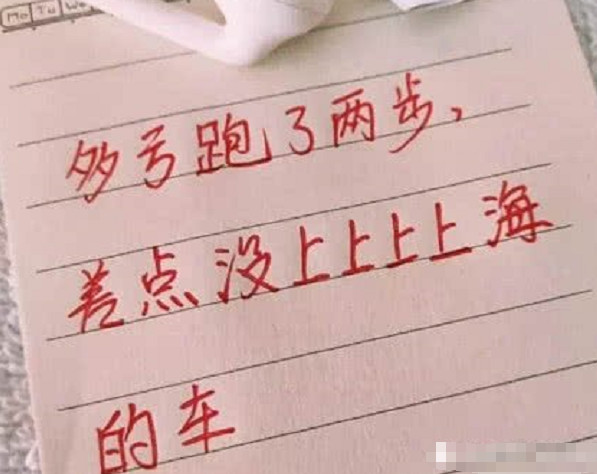 Mo Tu We
多亏跑了两步,
差点没上上上上海
的车